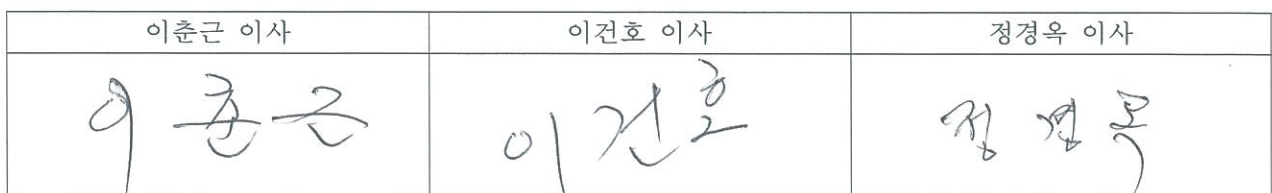 이춘근 이사
이건호 이사
정경옥 이사
이춘근
이건호
정경옥